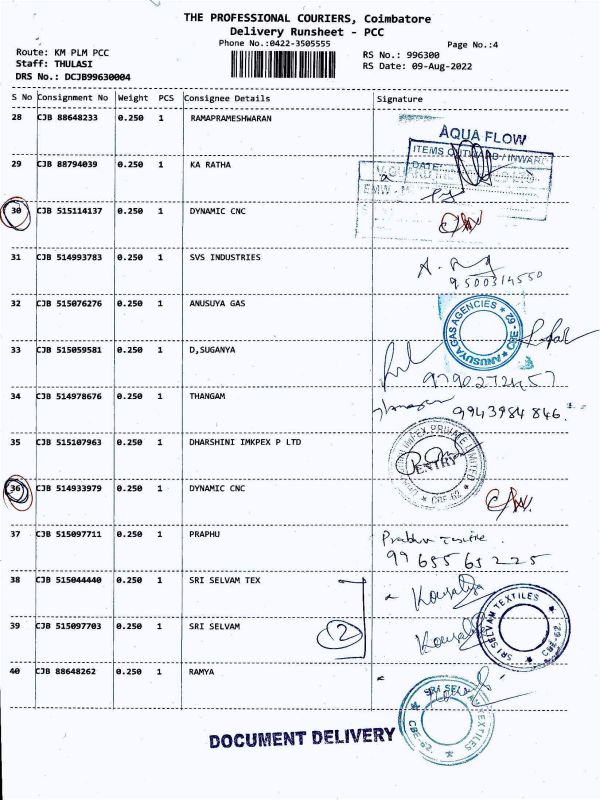 THE PROFESSIONAL COURIERS, Coimbatore
Delivery Runsheet - PCC
Phone No.:0422-3505555
Page No.:4
Route: KM PLM PCC
RS No.: 996300
Staff: THULASI
RS Date: 09-Aug-2022
DRS No.: DCJB99630004
S No Consignment No Weight PCS Consignee Details Signature
28 CJB 88648233 0.250 1 RAMAPRAMESHWARAN
AQUA FLOW
ITEMS OUTWARD / INWARD
DATE
29 CJB 88794039 0.250 1 KA RATHA
30 CJB 515114137 0.250 1 DYNAMIC CNC
31 CJB 514993783 0.250 1 SVS INDUSTRIES
9500314550
32 CJB 515076276 0.250 1 ANUSUYA GAS
ANUSUYA GAS AGENCIES * CBE - 62 *
33 CJB 515059581 0.250 1 D,SUGANYA
34 CJB 514978676 0.250 1 THANGAM
9943984846
35 CJB 515107963 0.250 1 DHARSHINI IMKPEX P LTD
DHARSHINI IMPEX PRIVATE LIMITED
ENTRY
* CBE-62 *
36 CJB 514933979 0.250 1 DYNAMIC CNC
37 CJB 515097711 0.250 1 PRAPHU
9965563225
38 CJB 515044440 0.250 1 SRI SELVAM TEX
Kousalya
39 CJB 515097703 0.250 1 SRI SELVAM
2
Kousalya
SRI SELVAM TEXTILES * CBE-62. *
40 CJB 88648262 0.250 1 RAMYA
SRI SELVAM TEXTILES * CBE-62. *
DOCUMENT DELIVERY